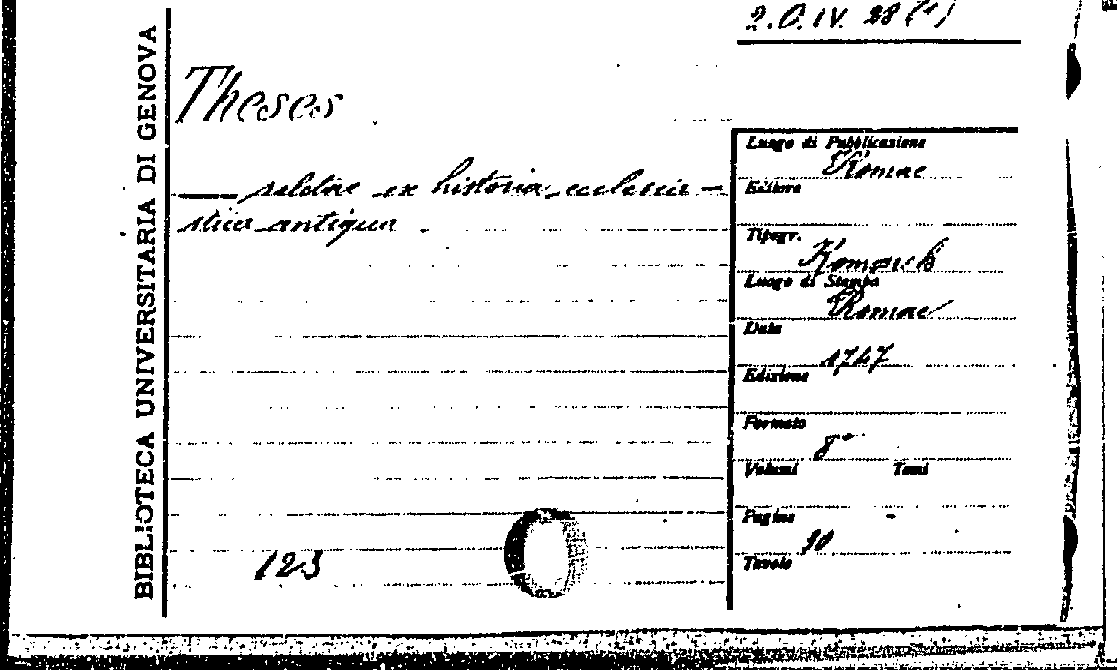 2.O.IV. 28 (1)
BIBLIOTECA UNIVERSITARIA DI GENOVA
Theses
—— selctae ex historia ecclesia-
stica antiqua.
123
Luogo di Pubblicazione
Romae
Editore
Tipogr.
Komarek
Luogo di Stampa
Romae
Data
1747
Edizione
Formato
8°
Volumi Tomi
Pagine
Tavole